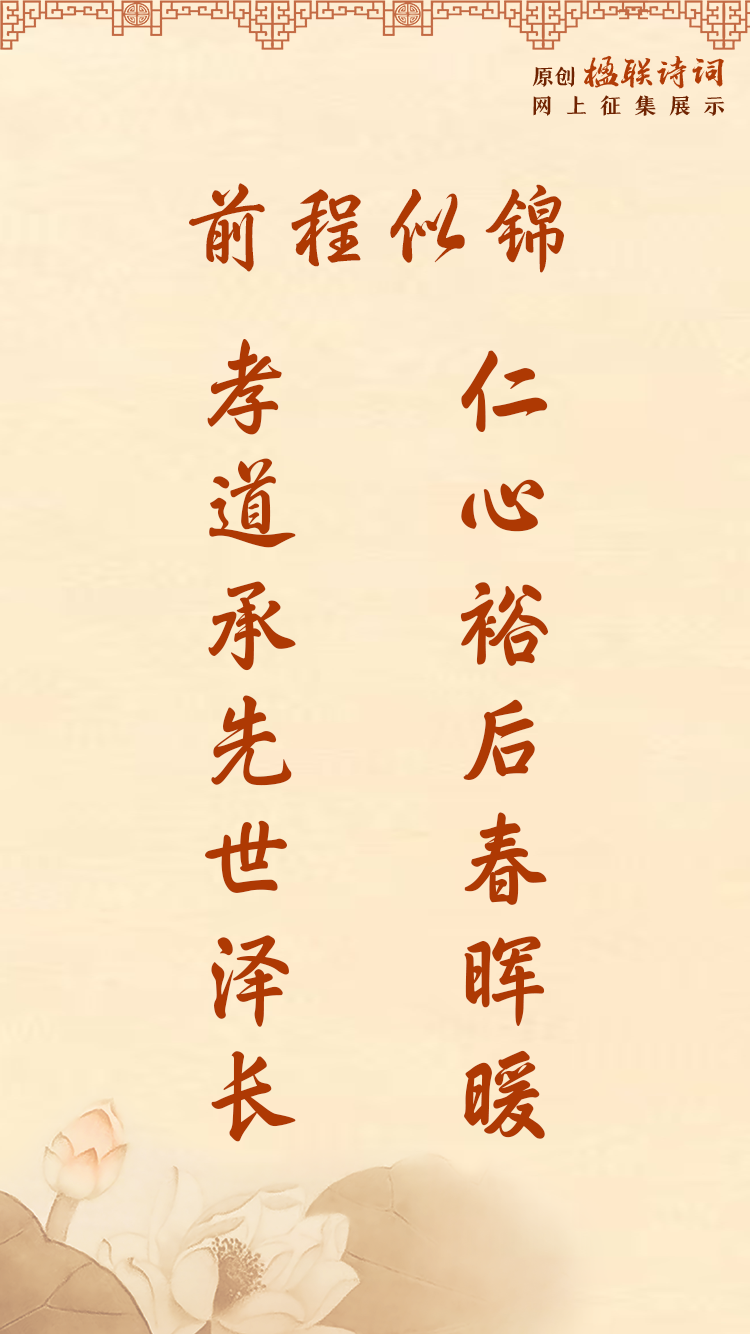 原创 楹联诗词
网上征集展示
前程似锦
仁心裕后春晖暖
孝道承先世泽长